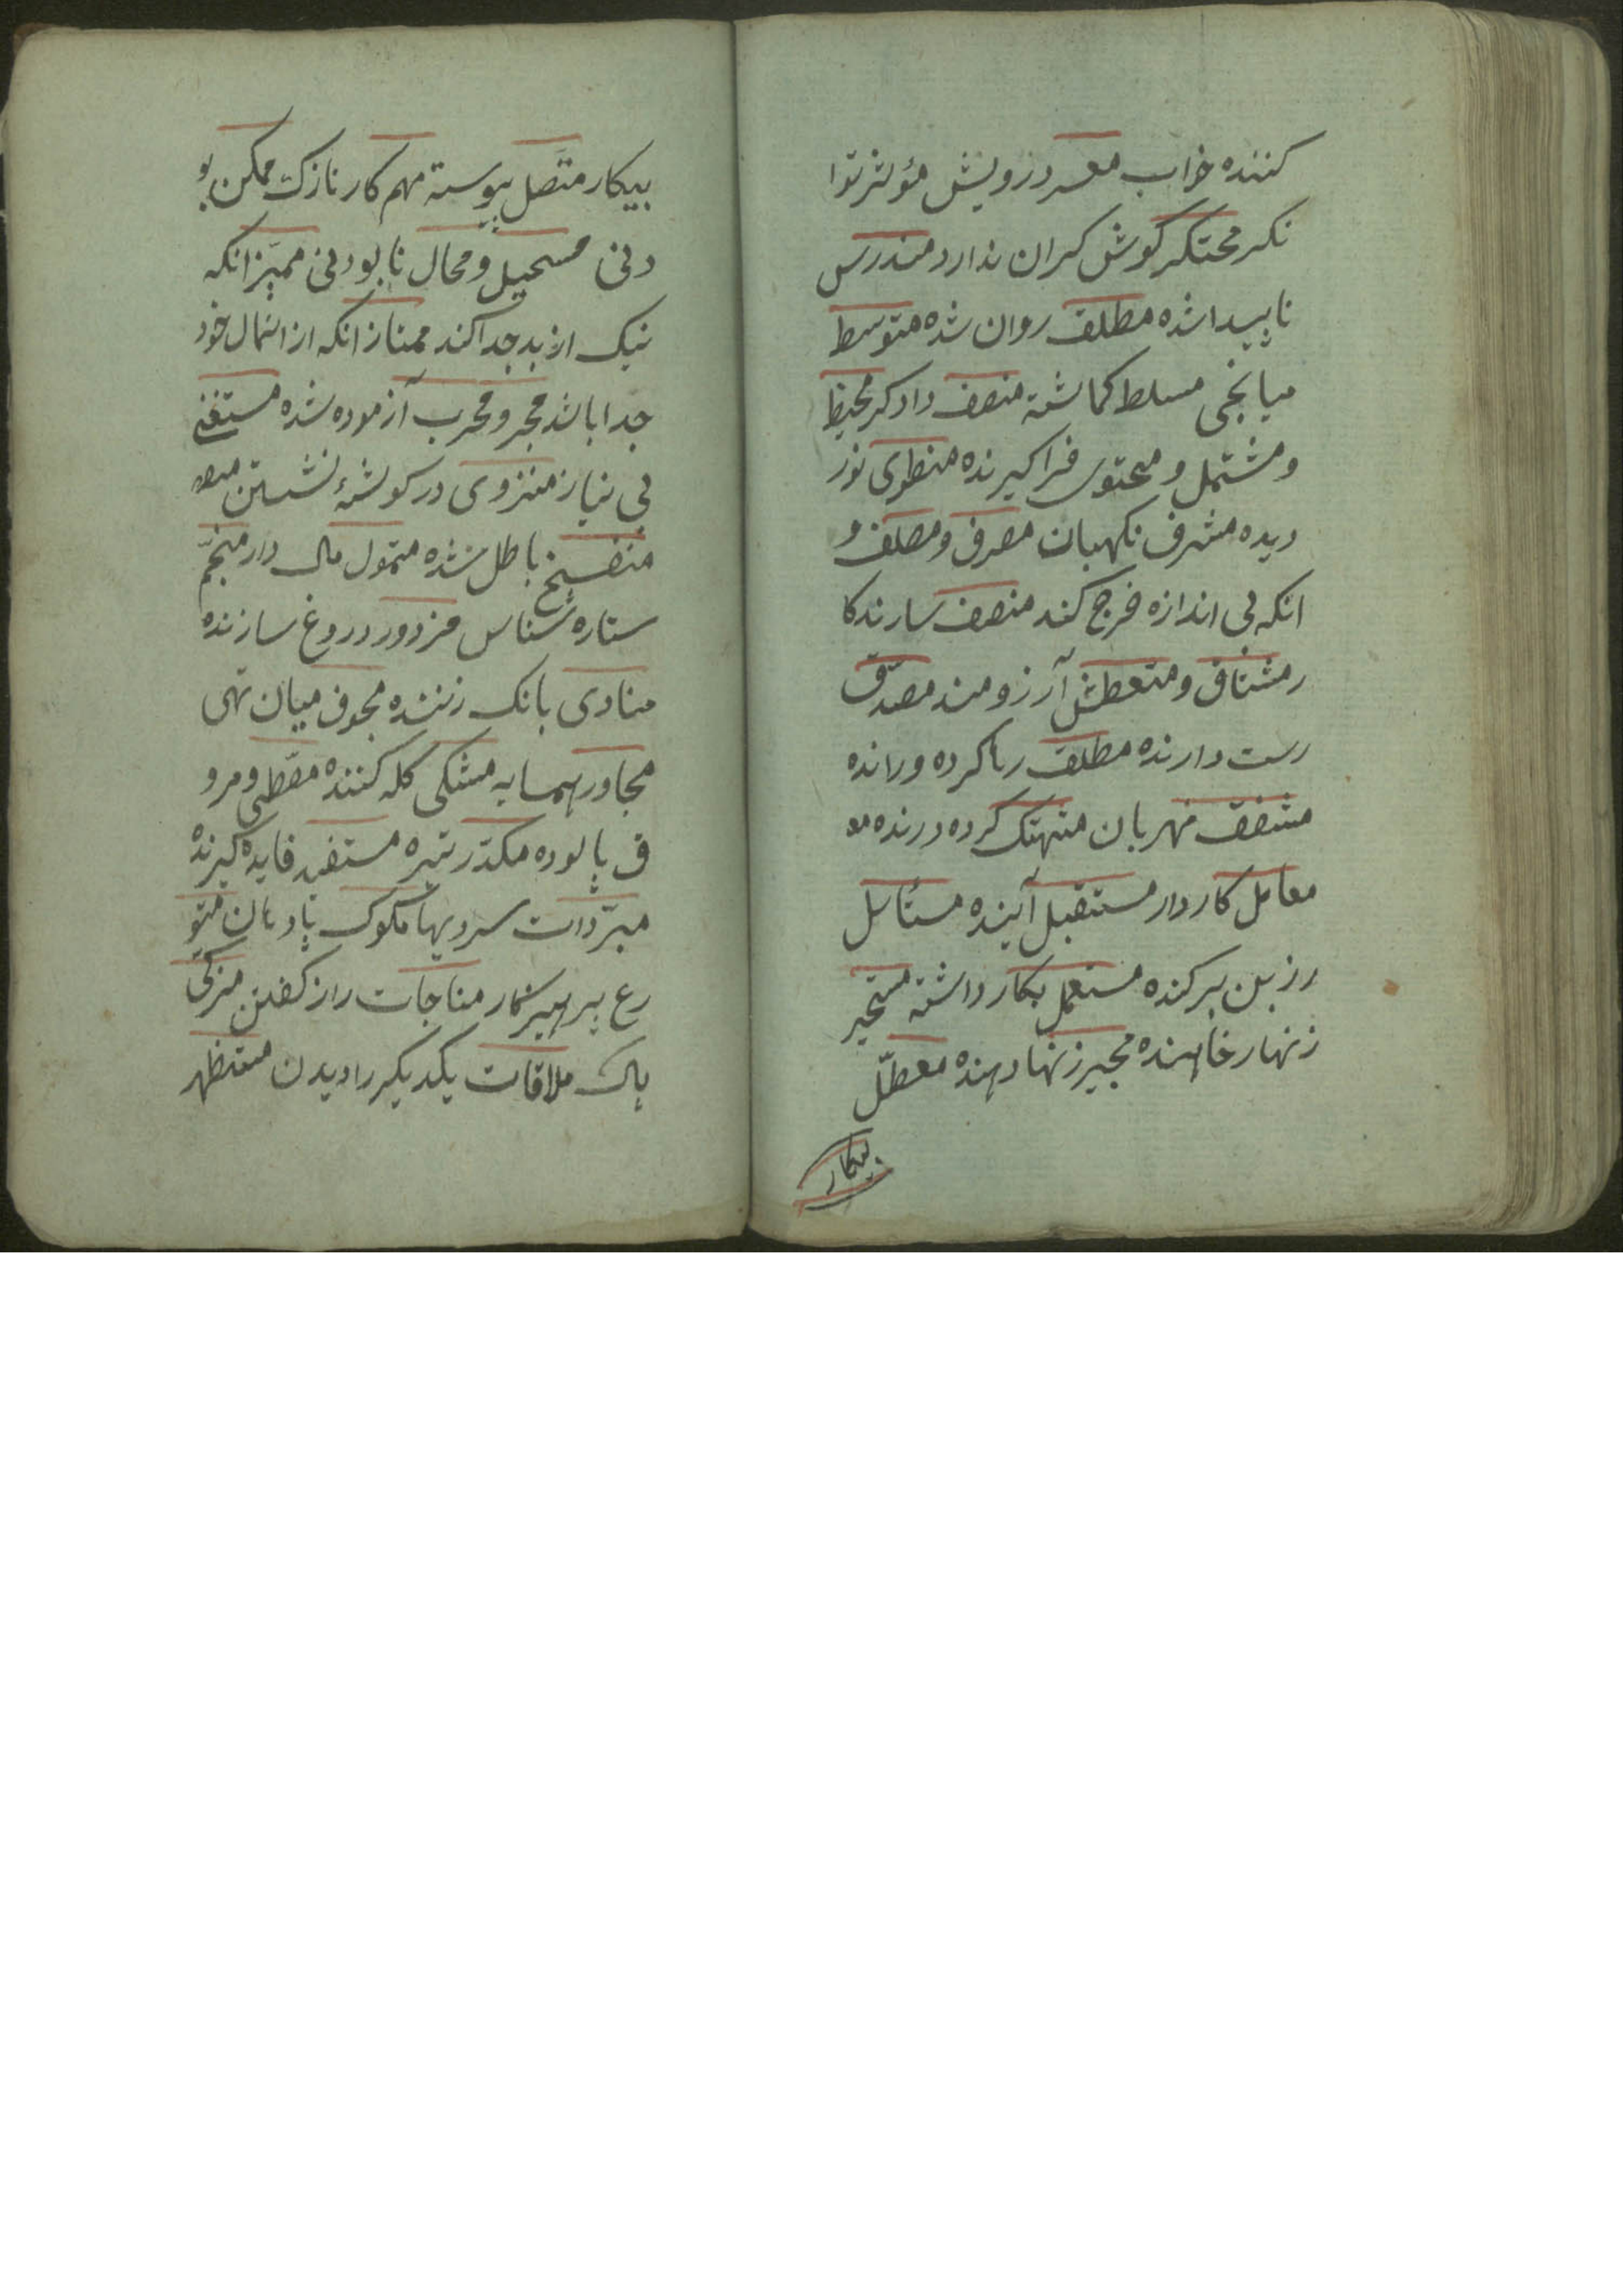 كننده خراب معسر درویش مؤثر توا
نكر محتكر كوش كران ندارد مندرس
ناپیدا شده مطلق روان شده متوسط
میانجی مسلط كماشته منصف دادكر محیط
و مشتمل و محتوی فرا كیرنده منطوی نور
دیده مشرف نكهبان مصرف و مصلف و
انكه بی اندازه خرج كند منصف سازندكا
ر مشتاق و متعطش آرزومند مصدّق
رست دارنده مطلق رها كرده و رانده
مشفق مهربان متهتك كرده درنده مو
معامل كاردار مستقبل آینده مستأسل
از بن بركنده مستعمل بكار داشته مستجیر
زنهار خاهنده مجیر زنهار دهنده معطّل
بیكار
بیكار متّصل پیوسته مهم كار نازك ممكن بو
دنی مستحیل و محال نابودنی ممیّز انكه
نیك از بد جدا كند ممتاز انكه از امثال خود
جدا باشد مجرّ و مجرب آزموده شده مستغنی
بی نیاز منزوی در كوشهٔ نشستن
منفسخ باطل شده متمول مال دار منجّم
ستاره شناس مزدور دروغ سازنده
منادی بانك زننده مجوف میان تهی
مجاور همسایه مشتكی كله كننده مقطّر و مرو
ق پالوده مكدّر تیره مستفید فایده كیرنده
مبرّدات سردیها مكوك پاو بان متو
رع پرهیزكار مناجات راز كفتن مزكّی
پاك ملاقات یكدیكر را دیدن مستظهر